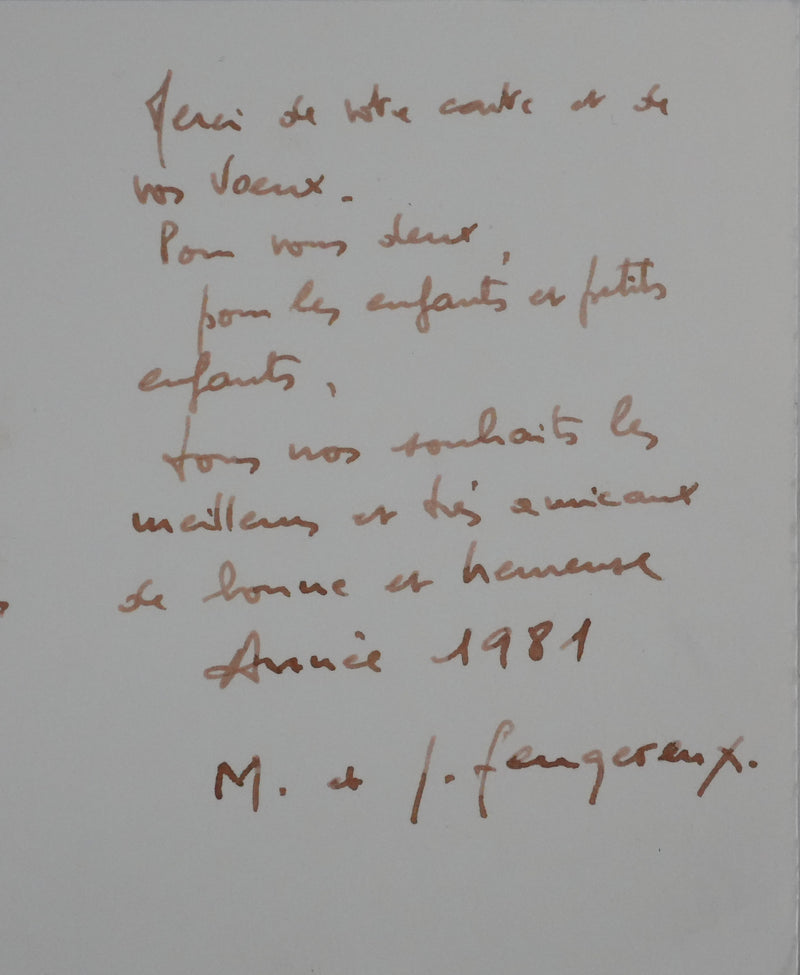 Merci de votre carte et de
vos Voeux.
Pour vous deux,
pour les enfants et petits
enfants,
tous nos souhaits les
meilleurs et très amicaux
de bonne et heureuse
Année 1981
M. et J. Feugereux.